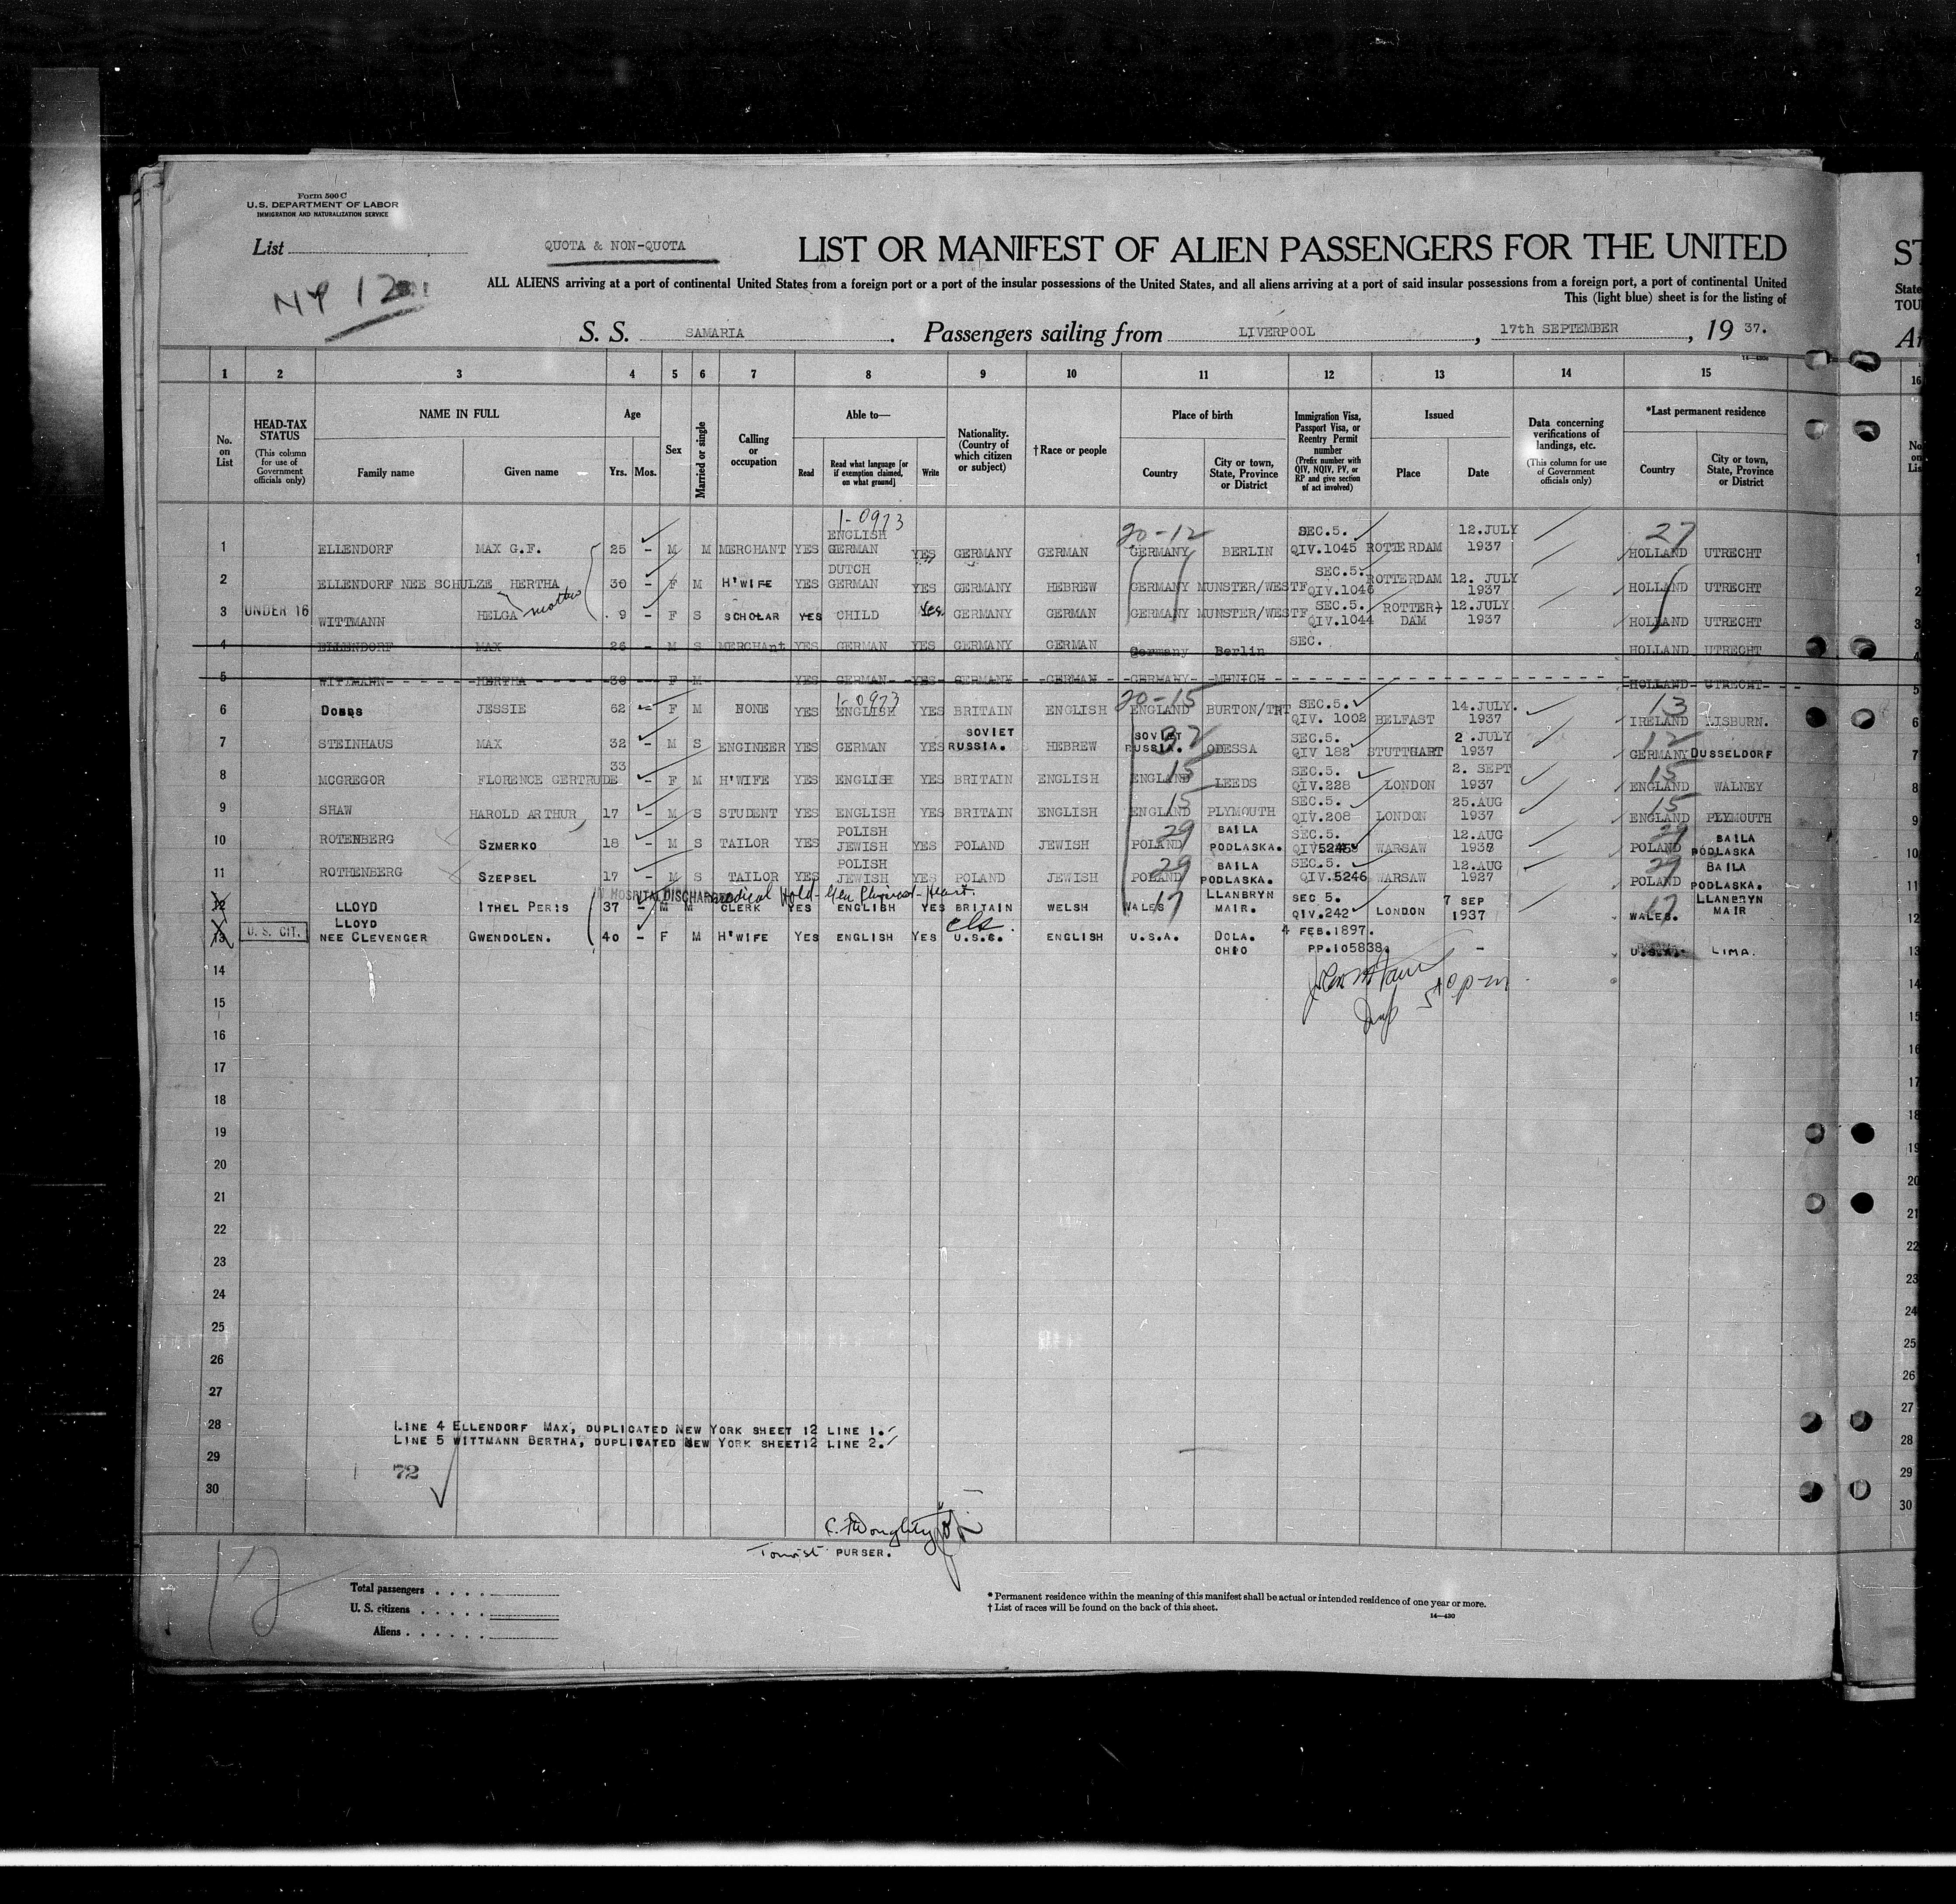 Form 500 C
U.S. DEPARTMENT OF LABOR
IMMIGRATION AND NATURALIZATION SERVICE
List
QUOTA & NON-QUOTA
LIST OR MANIFEST OF ALIEN PASSENGERS FOR THE UNITED
ST
NY 12
ALL ALIENS arriving at a port of continental United States from a foreign port or a port of the insular possessions of the United States, and all aliens arriving at a port of said insular possessions from a foreign port, a port of continental United
State
This (light blue) sheet is for the listing of
TOU
S. S. SAMARIA. Passengers sailing from LIVERPOOL, 17th SEPTEMBER, 19 37.
Ar
1 2 3 4 5 6 7 8 9 10 11 12 13 14 15 16
No. on List
HEAD-TAX STATUS (This column for use of Government officials only)
NAME IN FULL Family name Given name
Age Yrs. Mos.
Sex
Married or single
Calling or occupation
Able to— Read Read what language [or if exemption claimed, on what ground] Write
Nationality. (Country of which citizen or subject)
†Race or people
Place of birth Country City or town, State, Province or District
Immigration Visa, Passport Visa, or Reentry Permit number (Prefix number with QIV, NQIV, PV, or RP and give section of act involved)
Issued Place Date
Data concerning verifications of landings, etc. (This column for use of Government officials only)
*Last permanent residence Country City or town, State, Province or District
1-0973 20-12 27
1 ELLENDORF MAX G.F. 25 - M M MERCHANT YES ENGLISH GERMAN YES GERMANY GERMAN GERMANY BERLIN SEC.5. QIV.1045 ROTTERDAM 12.JULY 1937 HOLLAND UTRECHT 1
2 ELLENDORF NEE SCHULZE HERTHA 30 - F M H'WIFE YES DUTCH GERMAN YES GERMANY HEBREW GERMANY MUNSTER/WESTF SEC.5. QIV.1046 ROTTERDAM 12. JULY 1937 HOLLAND UTRECHT 2
mother
3 UNDER 16 WITTMANN HELGA 9 - F S SCHOLAR YES CHILD Yes. GERMANY GERMAN GERMANY MUNSTER/WESTF SEC.5. QIV.1044 ROTTER DAM 12.JULY 1937 HOLLAND UTRECHT 3
4 ELLENDORF MAX 26 - M S MERCHAnt YES GERMAN YES GERMANY GERMAN Germany Berlin SEC. HOLLAND UTRECHT 4
5 WITTMANN HERTHA 30 - F M YES GERMAN YES GERMANY GERMAN GERMANY MUNICH HOLLAND UTRECHT 5
1-0973 20-15 13
6 DOBBS JESSIE 62 - F M NONE YES ENGLISH YES BRITAIN ENGLISH ENGLAND BURTON/TRT SEC.5. QIV. 1002 BELFAST 14.JULY. 1937 IRELAND LISBURN. 6
7 STEINHAUS MAX 32 - M S ENGINEER YES GERMAN YES SOVIET RUSSIA. HEBREW SOVIET RUSSIA. 32 ODESSA SEC.5. QIV 182 STUTTGART 2 .JULY 1937 12 GERMANY DUSSELDORF 7
8 MCGREGOR FLORENCE GERTRUDE 33 - F M H'WIFE YES ENGLISH YES BRITAIN ENGLISH ENGLAND 15 LEEDS SEC.5. QIV.228 LONDON 2. SEPT 1937 15 ENGLAND WALNEY 8
9 SHAW HAROLD ARTHUR, 17 - M S STUDENT YES ENGLISH YES BRITAIN ENGLISH ENGLAND 15 PLYMOUTH SEC.5. QIV.208 LONDON 25.AUG 1937 15 ENGLAND PLYMOUTH 9
10 ROTENBERG SZMERKO 18 - M S TAILOR YES POLISH JEWISH YES POLAND JEWISH POLAND 29 BAILA PODLASKA. SEC.5. WARSAW 12.AUG 1938 29 POLAND BAILA PODLASKA 10
11 ROTHENBERG SZEPSEL 17 - M S TAILOR YES POLISH JEWISH YES POLAND JEWISH POLAND 29 BAILA PODLASKA. SEC.5. QIV.5246 WARSAW 12.AUG 1927 29 POLAND BAILA PODLASKA. 11
IN HOSPITAL DISCHARGED Medical Hold - Gen Physical - Heart.
12 LLOYD ITHEL PERIS 37 - M M CLERK YES ENGLISH YES BRITAIN WELSH WALES 17 LLANBRYN MAIR. SEC 5. QIV.242 LONDON 7 SEP 1937 17 WALES. LLANBRYN MAIR 12
13 U. S. CIT. LLOYD NEE CLEVENGER GWENDOLEN. 40 - F M H'WIFE YES ENGLISH YES U.S.C. ENGLISH U.S.A. DOLA. OHIO 4 FEB.1897. PP.105838. - U.S.A. LIMA. 13
14 14
15 15
16 16
17 17
18 18
19 19
20 20
21 21
22 22
23 23
24 24
25 25
26 26
27 27
28 28
LINE 4 ELLENDORF MAX, DUPLICATED NEW YORK SHEET 12 LINE 1.
LINE 5 WITTMANN BERTHA, DUPLICATED NEW YORK SHEET12 LINE 2.
29 29
72
30 30
Tourist PURSER.
12
Total passengers
U. S. citizens
Aliens
* Permanent residence within the meaning of this manifest shall be actual or intended residence of one year or more.
† List of races will be found on the back of this sheet.
14—430